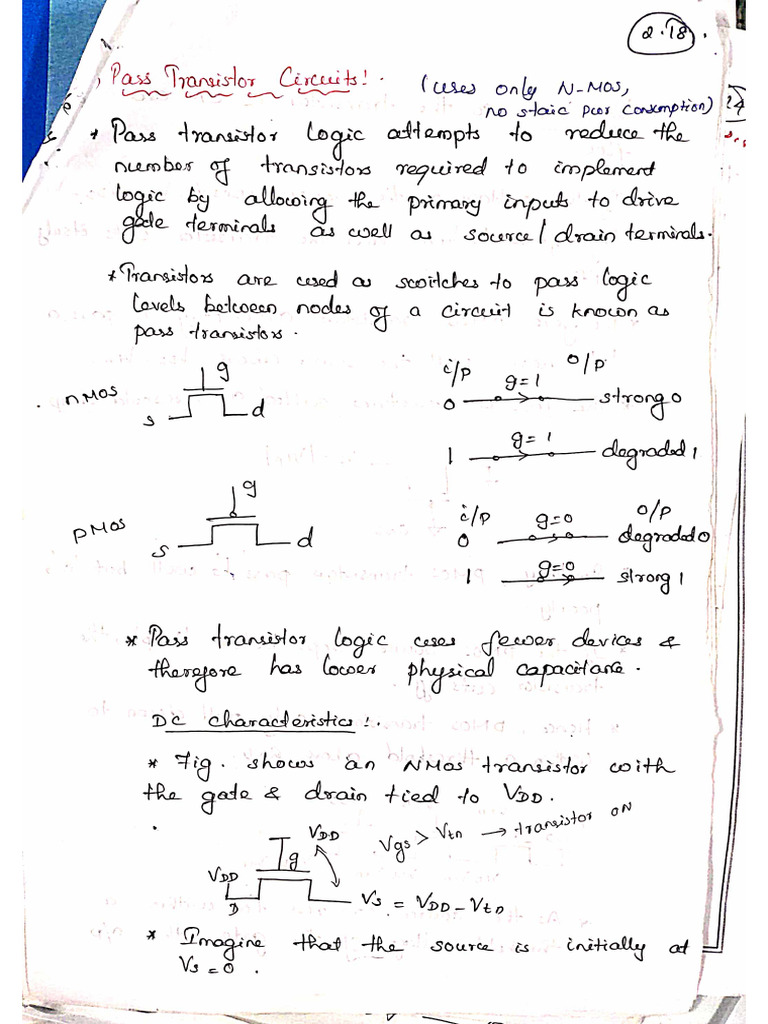 2.18.
Pass Transistor Circuits!.
(uses only N-MOS,
no staic pwr consmption)
* Pass transistor logic attempts to reduce the
number of transistors required to implement
logic by allowing the primary inputs to drive
gate terminals as well as source/drain terminals.
* Transistors are used as switches to pass logic
levels between nodes of a circuit is known as
pass transistors.
nMOS
g
s
d
i/p
o/p
0
g=1
strong 0
1
g=1
degraded 1
pMOS
g
s
d
i/p
o/p
0
g=0
degraded 0
1
g=0
strong 1
* Pass transistor logic uses fewer devices &
therefore has lower physical capacitance.
DC characteristics!.
* Fig. shows an NMOS transistor with
the gate & drain tied to VDD.
VDD
g
VDD
D
Vgs > Vtn → transistor ON
Vs = VDD - Vtn
* Imagine that the source is initially at
Vs = 0.